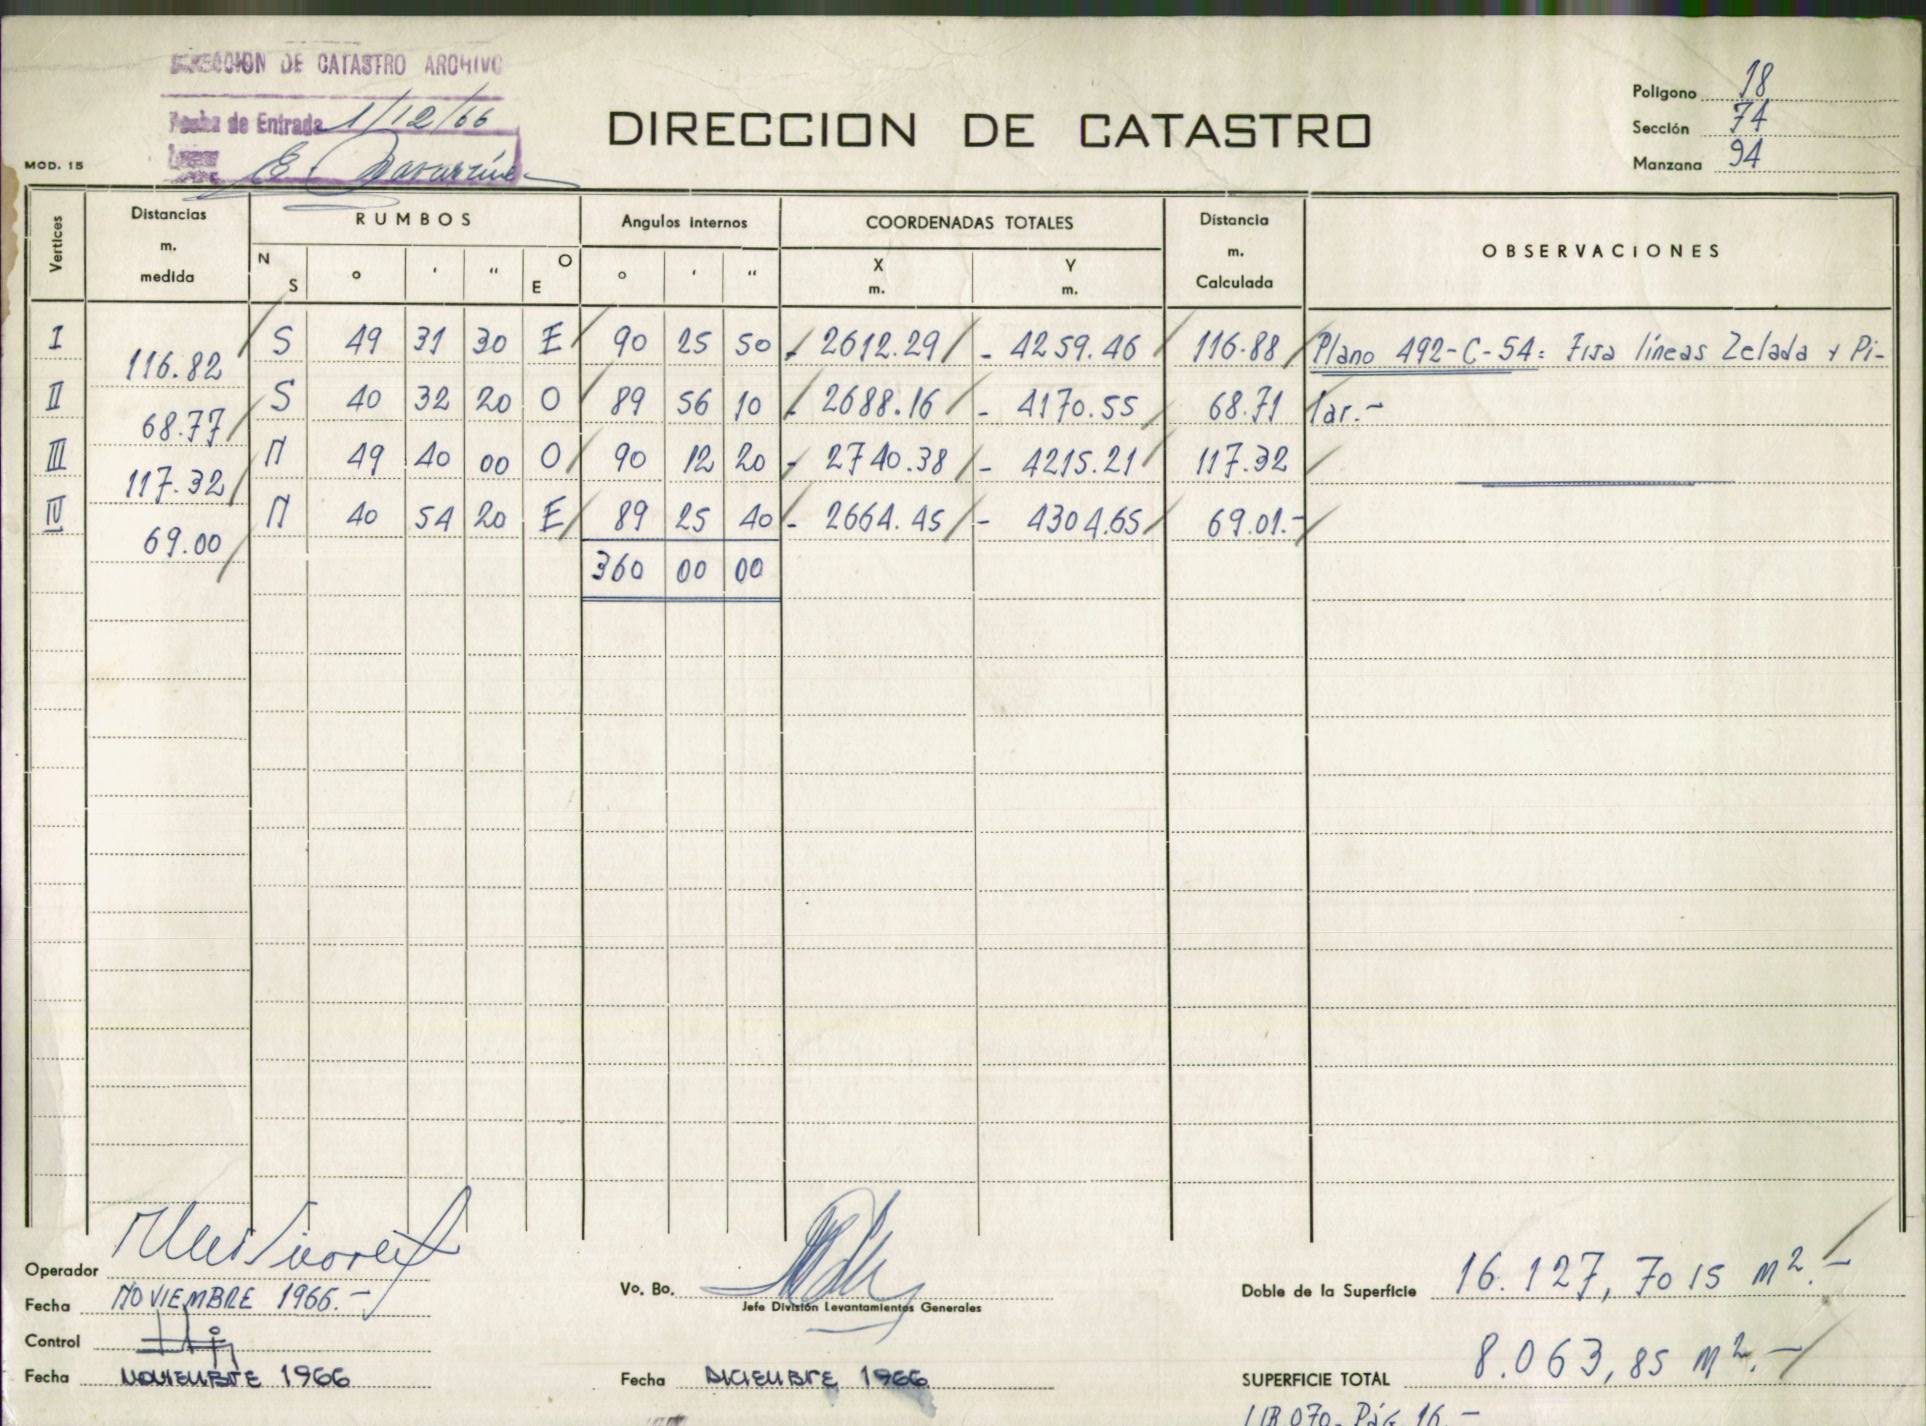 DIRECCION DE CATASTRO ARCHIVO
Fecha de Entrada 1/12/66
MOD. 15
DIRECCION DE CATASTRO
Poligono 18
Sección 74
Manzana 94
Vertices
Distancias m. medida
RUMBOS
Angulos internos
COORDENADAS TOTALES
Distancia m. Calculada
OBSERVACIONES
N S ° ' " O E ° ' " X m. Y m.
I S 49 31 30 E 90 25 50 - 2612.29 - 4259.46 116.88 Plano 492-C-54: Fija líneas Zelada y Pi-
116.82
II S 40 32 20 O 89 56 10 - 2688.16 - 4170.55 68.71 lar.-
68.77
III N 49 40 00 O 90 12 20 - 2740.38 - 4215.21 117.32
117.32
IV N 40 54 20 E 89 25 40 - 2664.45 - 4304.65 69.01.-
69.00
360 00 00
Operador
Fecha NOVIEMBRE 1966.-
Control
Fecha NOVIEMBRE 1966
Vo. Bo.
Jefe División Levantamientos Generales
Fecha DICIEMBRE 1966
Doble de la Superficie 16.127,7015 m2.-
SUPERFICIE TOTAL 8.063,85 m2.-
LIB.070- PÁG. 16.-